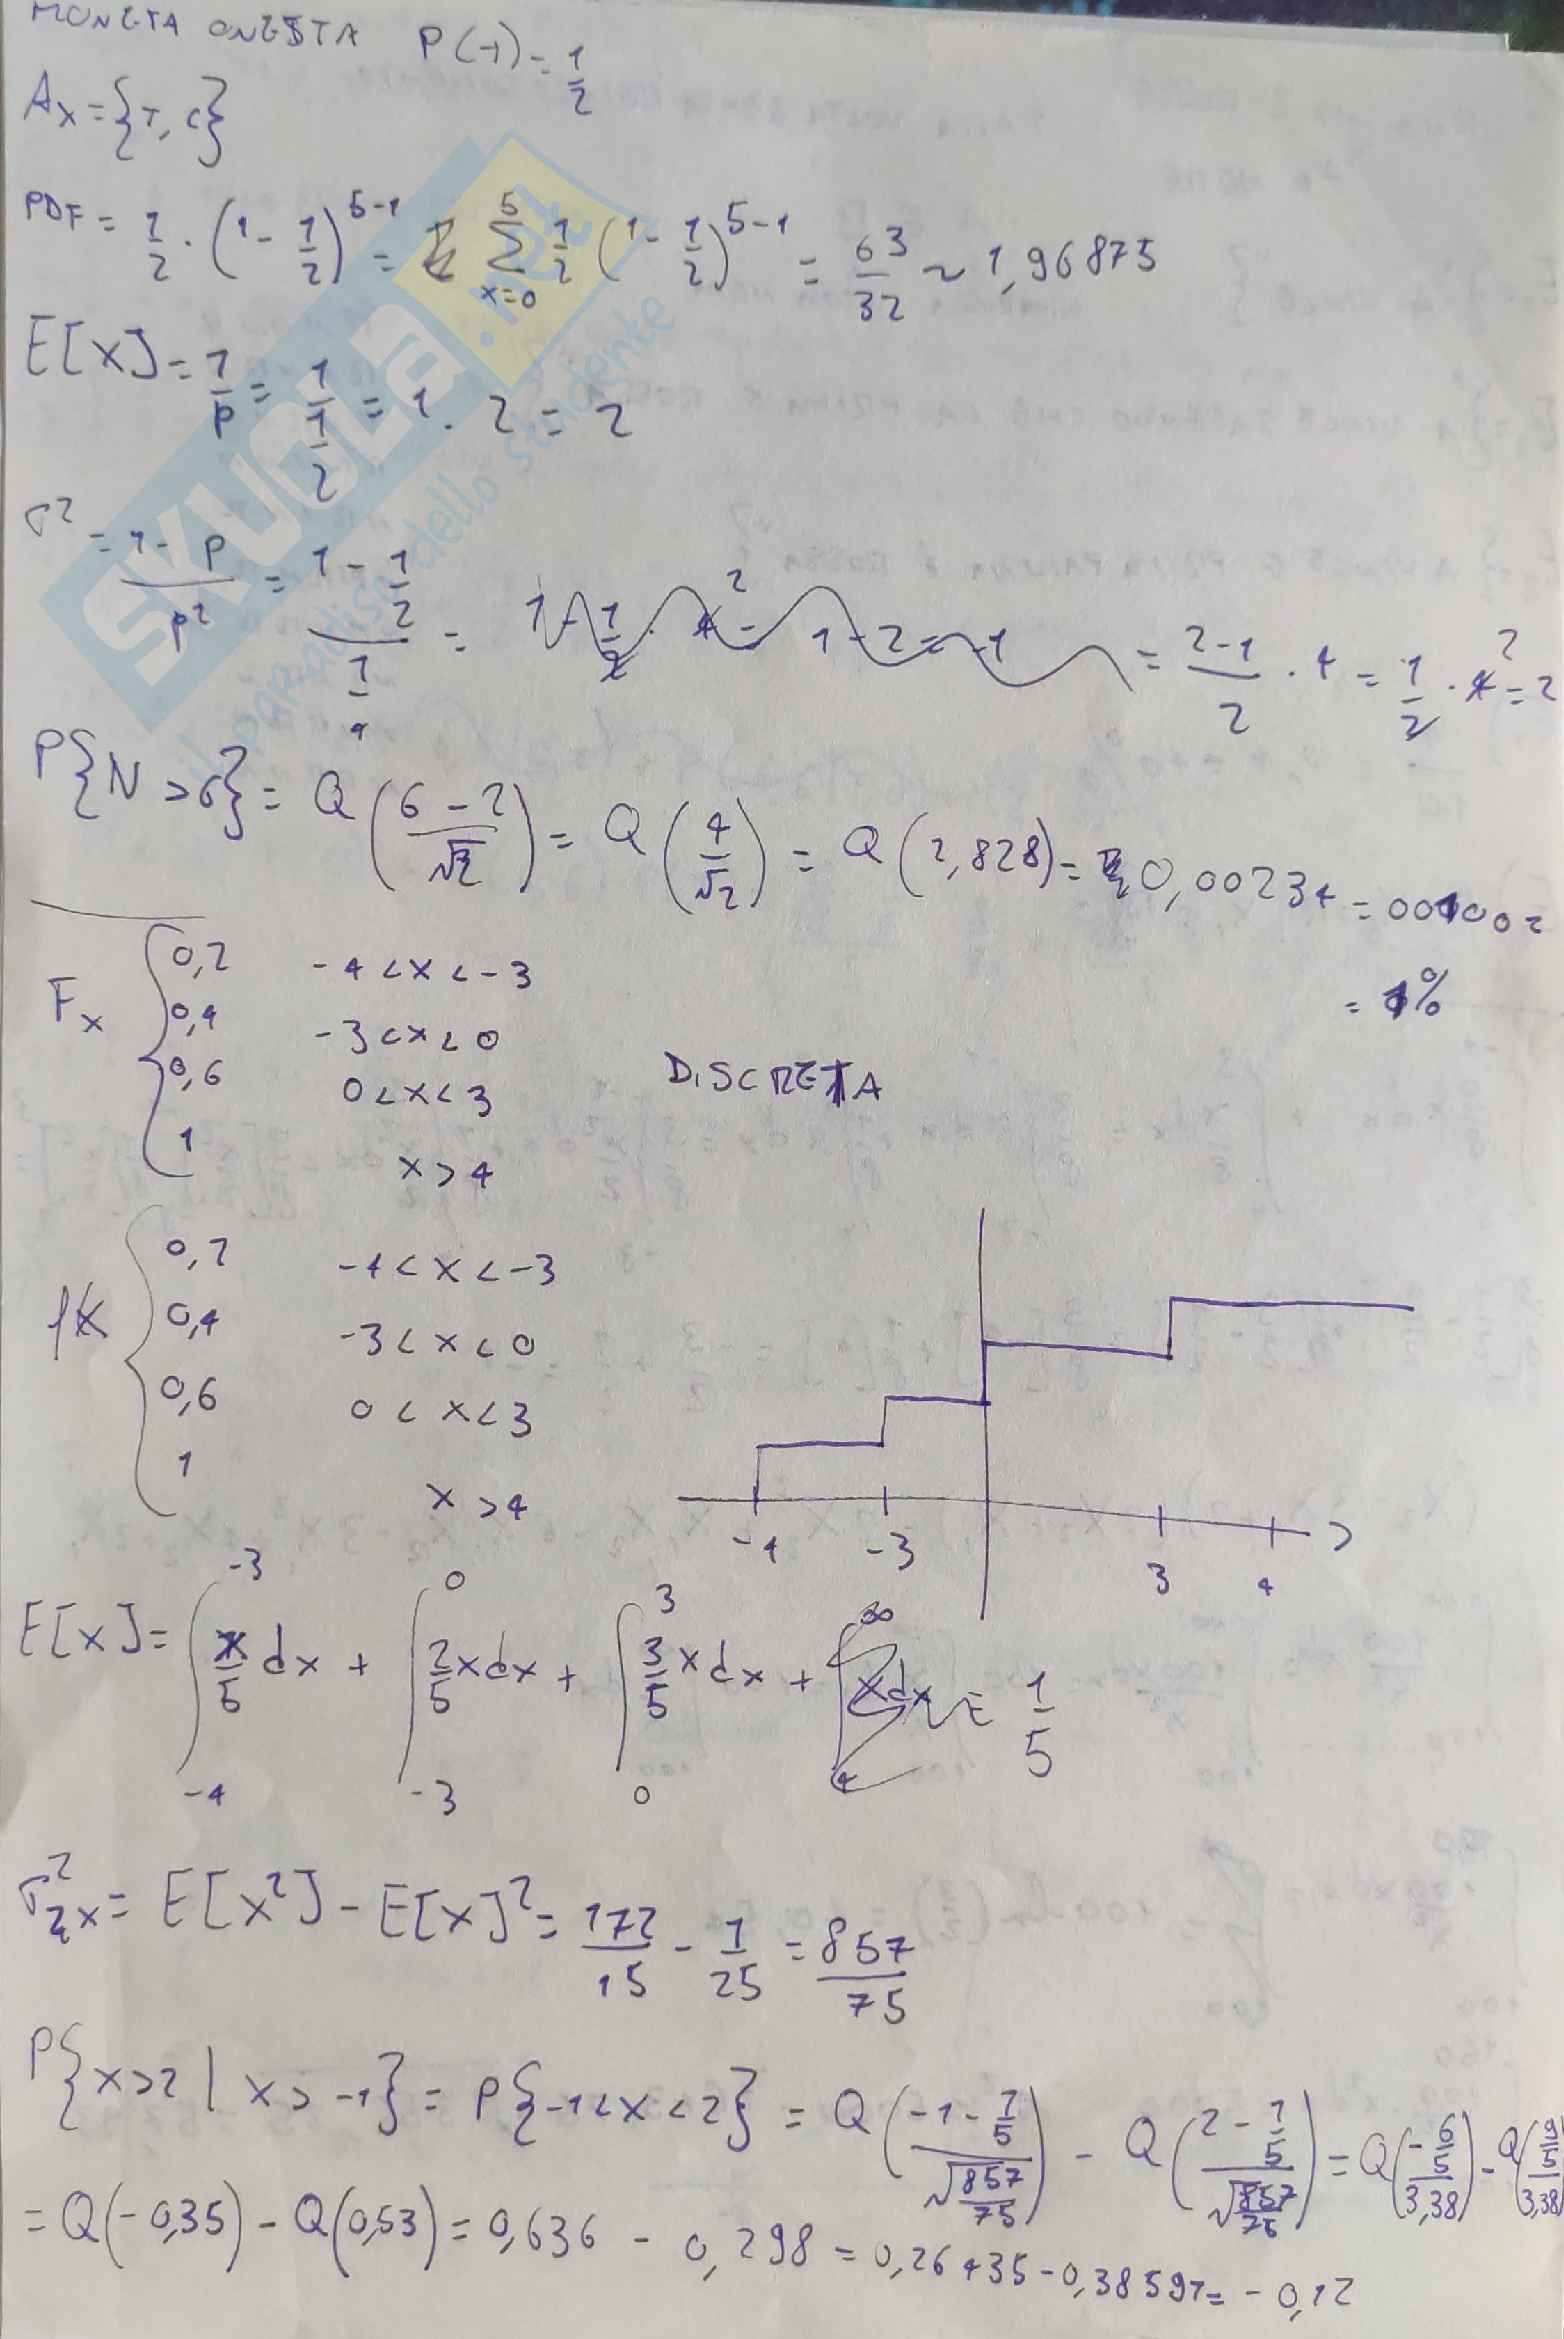 MONETA ONESTA P(T) = 1/2
Ax = {T, C}
PDF = 1/2 · (1 - 1/2)^5-1 = Σ x=0 5 1/2 (1 - 1/2)^5-1 = 63/32 ~ 1,96875
E[x] = 1/p = 1/(1/2) = 1 · 2 = 2
σ² = (1 - p)/p² = (1 - 1/2)/(1/4) = (2-1)/2 · 4 = 1/2 · 4 2 = 2
P{N > 6} = Q((6 - 2)/√2) = Q(4/√2) = Q(2,828) = 0,00234 =
= %
Fx { 0,2 -4 < x < -3
0,4 -3 < x < 0
0,6 0 < x < 3
1 x > 4
DISCRETA
{ 0,2 -4 < x < -3
0,4 -3 < x < 0
0,6 0 < x < 3
1 x > 4
-4 -3 3 4
E[x] = ∫ -4 -3 x/5 dx + ∫ -3 0 2/5 x dx + ∫ 0 3 3/5 x dx + = 1/5
σ²x = E[x²] - E[x]² = 172/15 - 1/25 = 857/75
P{x > 2 | x > -1} = P{-1 < x < 2} = Q((-1 - 1/5)/√(857/75)) - Q((2 - 1/5)/√(857/75)) = Q((-6/5)/3,38) - Q((9/5)/3,38)
= Q(-0,35) - Q(0,53) = 0,636 - 0,298 = 0,26435 - 0,38597 = -0,12
SKUOLA.net
il paradiso dello studente